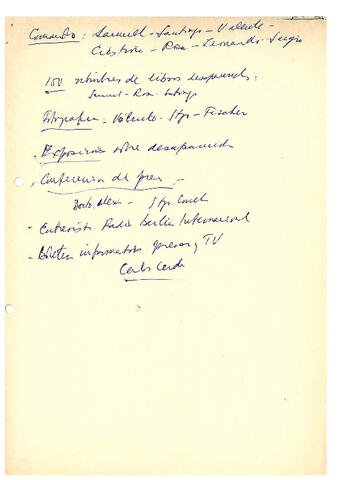 Comando: Samuel - Santiago - Valente -
Cristina - Rosa - Leonardo - Sergio
100 nombres de libros desaparecid.:
Samuel - Rosa - Santiago
Fotografia: - Valente - Stgo - Fischer
- Exposición sobre desaparecidos
- Conferencia de prensa -
- Stgo
- Entrevista Radio Berlin Internacional
- Boletin informativo prensa y TV
Carlos Cerda